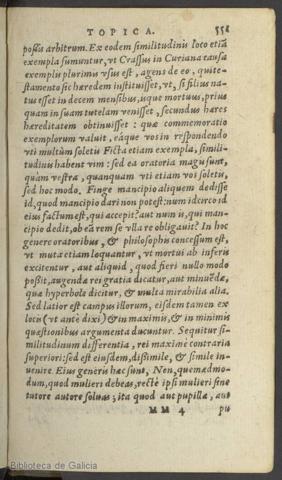 TOPICA. 551
possis arbitrum. Ex eodem similitudinis loco etiã
exempla sumuntur, vt Crassus in Curiana causa
exemplis plurimis vsus est, agens de eo, qui te-
stamento sic hæredem instituisset, vt, si filius na-
tus esset in decem mensibus, isque mortuus, prius
quam in suam tutelam venisset, secundus hæres
hæreditatem obtinuisset : quæ commemoratio
exemplorum valuit, eáque vos in respondendo
vti multùm soletis Ficta etiam exempla, simili-
tudinis habent vim : sed ea oratoria magis sunt,
quàm vestra, quanquam vti etiam vos soletis,
sed hoc modo. Finge mancipio aliquem dedisse
id, quod mancipio dari non potest: num idcirco id
eius factum est, qui accepit? aut num is, qui man-
cipio dedit, ob eã rem se vlla re obligauit? In hoc
genere oratoribus, & philosophis concessum est,
vt muta etiam loquantur, vt mortui ab inferis
excitentur, aut aliquid, quod fieri nullo modo
possit, augendæ rei gratia dicatur, aut minuẽdæ,
quæ hyperbole dicitur, & multa mirabilia alia.
Sed latior est campus illorum, eisdem tamen ex
locis (vt antè dixi) & in maximis, & in minimis
quæstionibus argumenta ducuntur. Sequitur si-
militudinum differentia, rei maximè contraria
superiori: sed est eiusdem, dissimile, & simile in-
uenire. Eius generis hæc sunt, Non, quemadmo-
dum, quod mulieri debeas, rectè ipsi mulieri sine
tutore autore soluas; ita quod aut pupillæ, aut
MM 4 pu
Biblioteca de Galicia